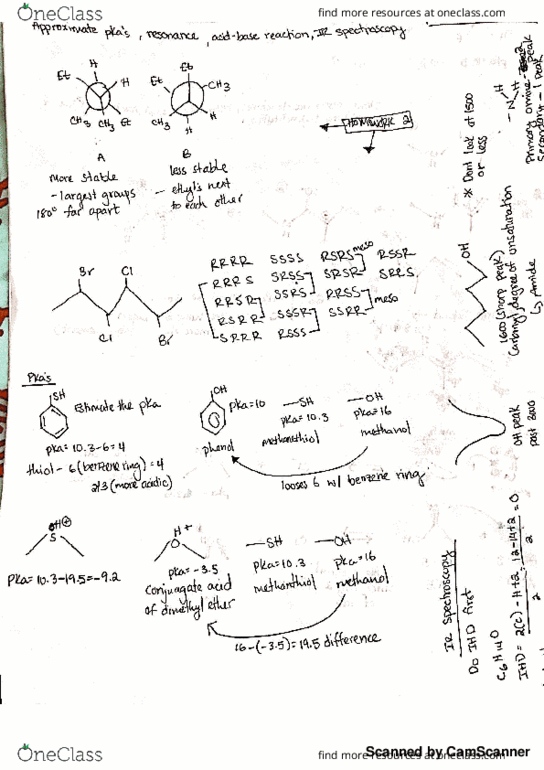 OneClass
find more resources at oneclass.com
Approximate pka's, resonance, acid-base reaction, IR spectroscopy
H
Et
H
CH3 CH3 Et
Et
Et
CH3
CH3
H
H
HOMEWORK 2
A
More stable
- largest groups
180° far apart
B
less stable
- ethyl's next
to each other
Br
Cl
Cl
Br
RRRR SSSS RSRS meso RSSR
RRRS SRSS SRSR SRRS
RRSR SSRS RRSS meso
RSRR SSSR SSRR
SRRR RSSS
Pka's
SH
Estimate the pka
pka = 10.3-6=4
thiol - 6 (benzene ring) = 4
2/3 (more acidic)
OH
pka=10
phenol
-SH
pka = 10.3
methanthiol
-OH
pka=16
methanol
looses 6 w/ benzene ring
H⊕
S
pka = 10.3-19.5=-9.2
H+
O
pka = -3.5
conjugate acid
of dimethyl ether
-SH
pka=10.3
methanthiol
-OH
pka=16
methanol
16-(-3.5)=19.5 difference
N
H
H
Primary amine - 2 peak
Secondary - 1 peak
* Dont look at 1500
or less
OH
1600 (sharp peak)
(carbonyl) degree of unsaturation
↳ Amide
OH peak
past 3000
IR Spectroscopy
Do IHD first
C6H14O
IHD = 2(C)-H+2 = 12-14+2 = 0
2
2
OneClass
find more resources at oneclass.com
Scanned by CamScanner